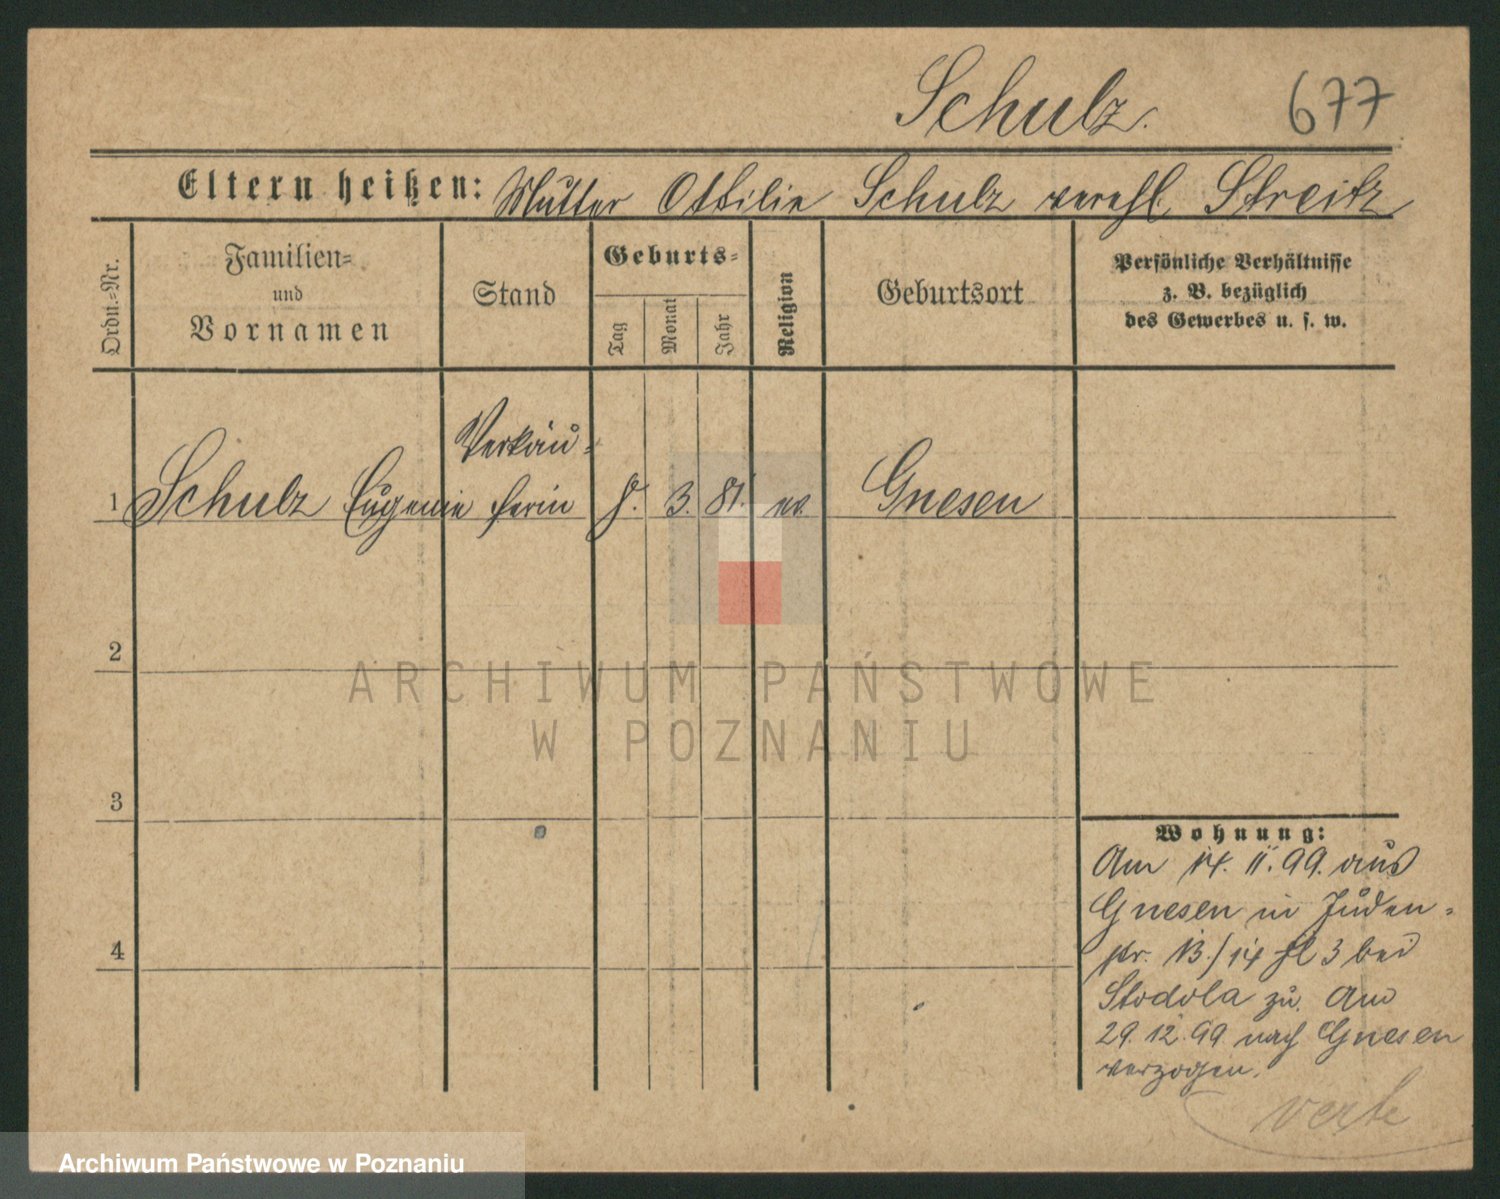 Schulz.
677
Eltern heißen: Mutter Ottilie Schulz verehl. Streitz
Ordn.=Nr.
Familien=
und
Vornamen
Stand
Geburts=
Tag
Monat
Jahr
Religion
Geburtsort
Persönliche Verhältnisse
z. B. bezüglich
des Gewerbes u. s. w.
Verkäu=
1 Schulz Eugenie ferin 8. 3. 81. ev. Gnesen
2
3
4
Wohnung:
Am 14. 11. 99. aus
Gnesen in Juden=
str. 13./14 bei
Stodola zu. Am
29. 12. 99 nach Gnesen
verzogen.
verte
ARCHIWUM PAŃSTWOWE
W POZNANIU
Archiwum Państwowe w Poznaniu